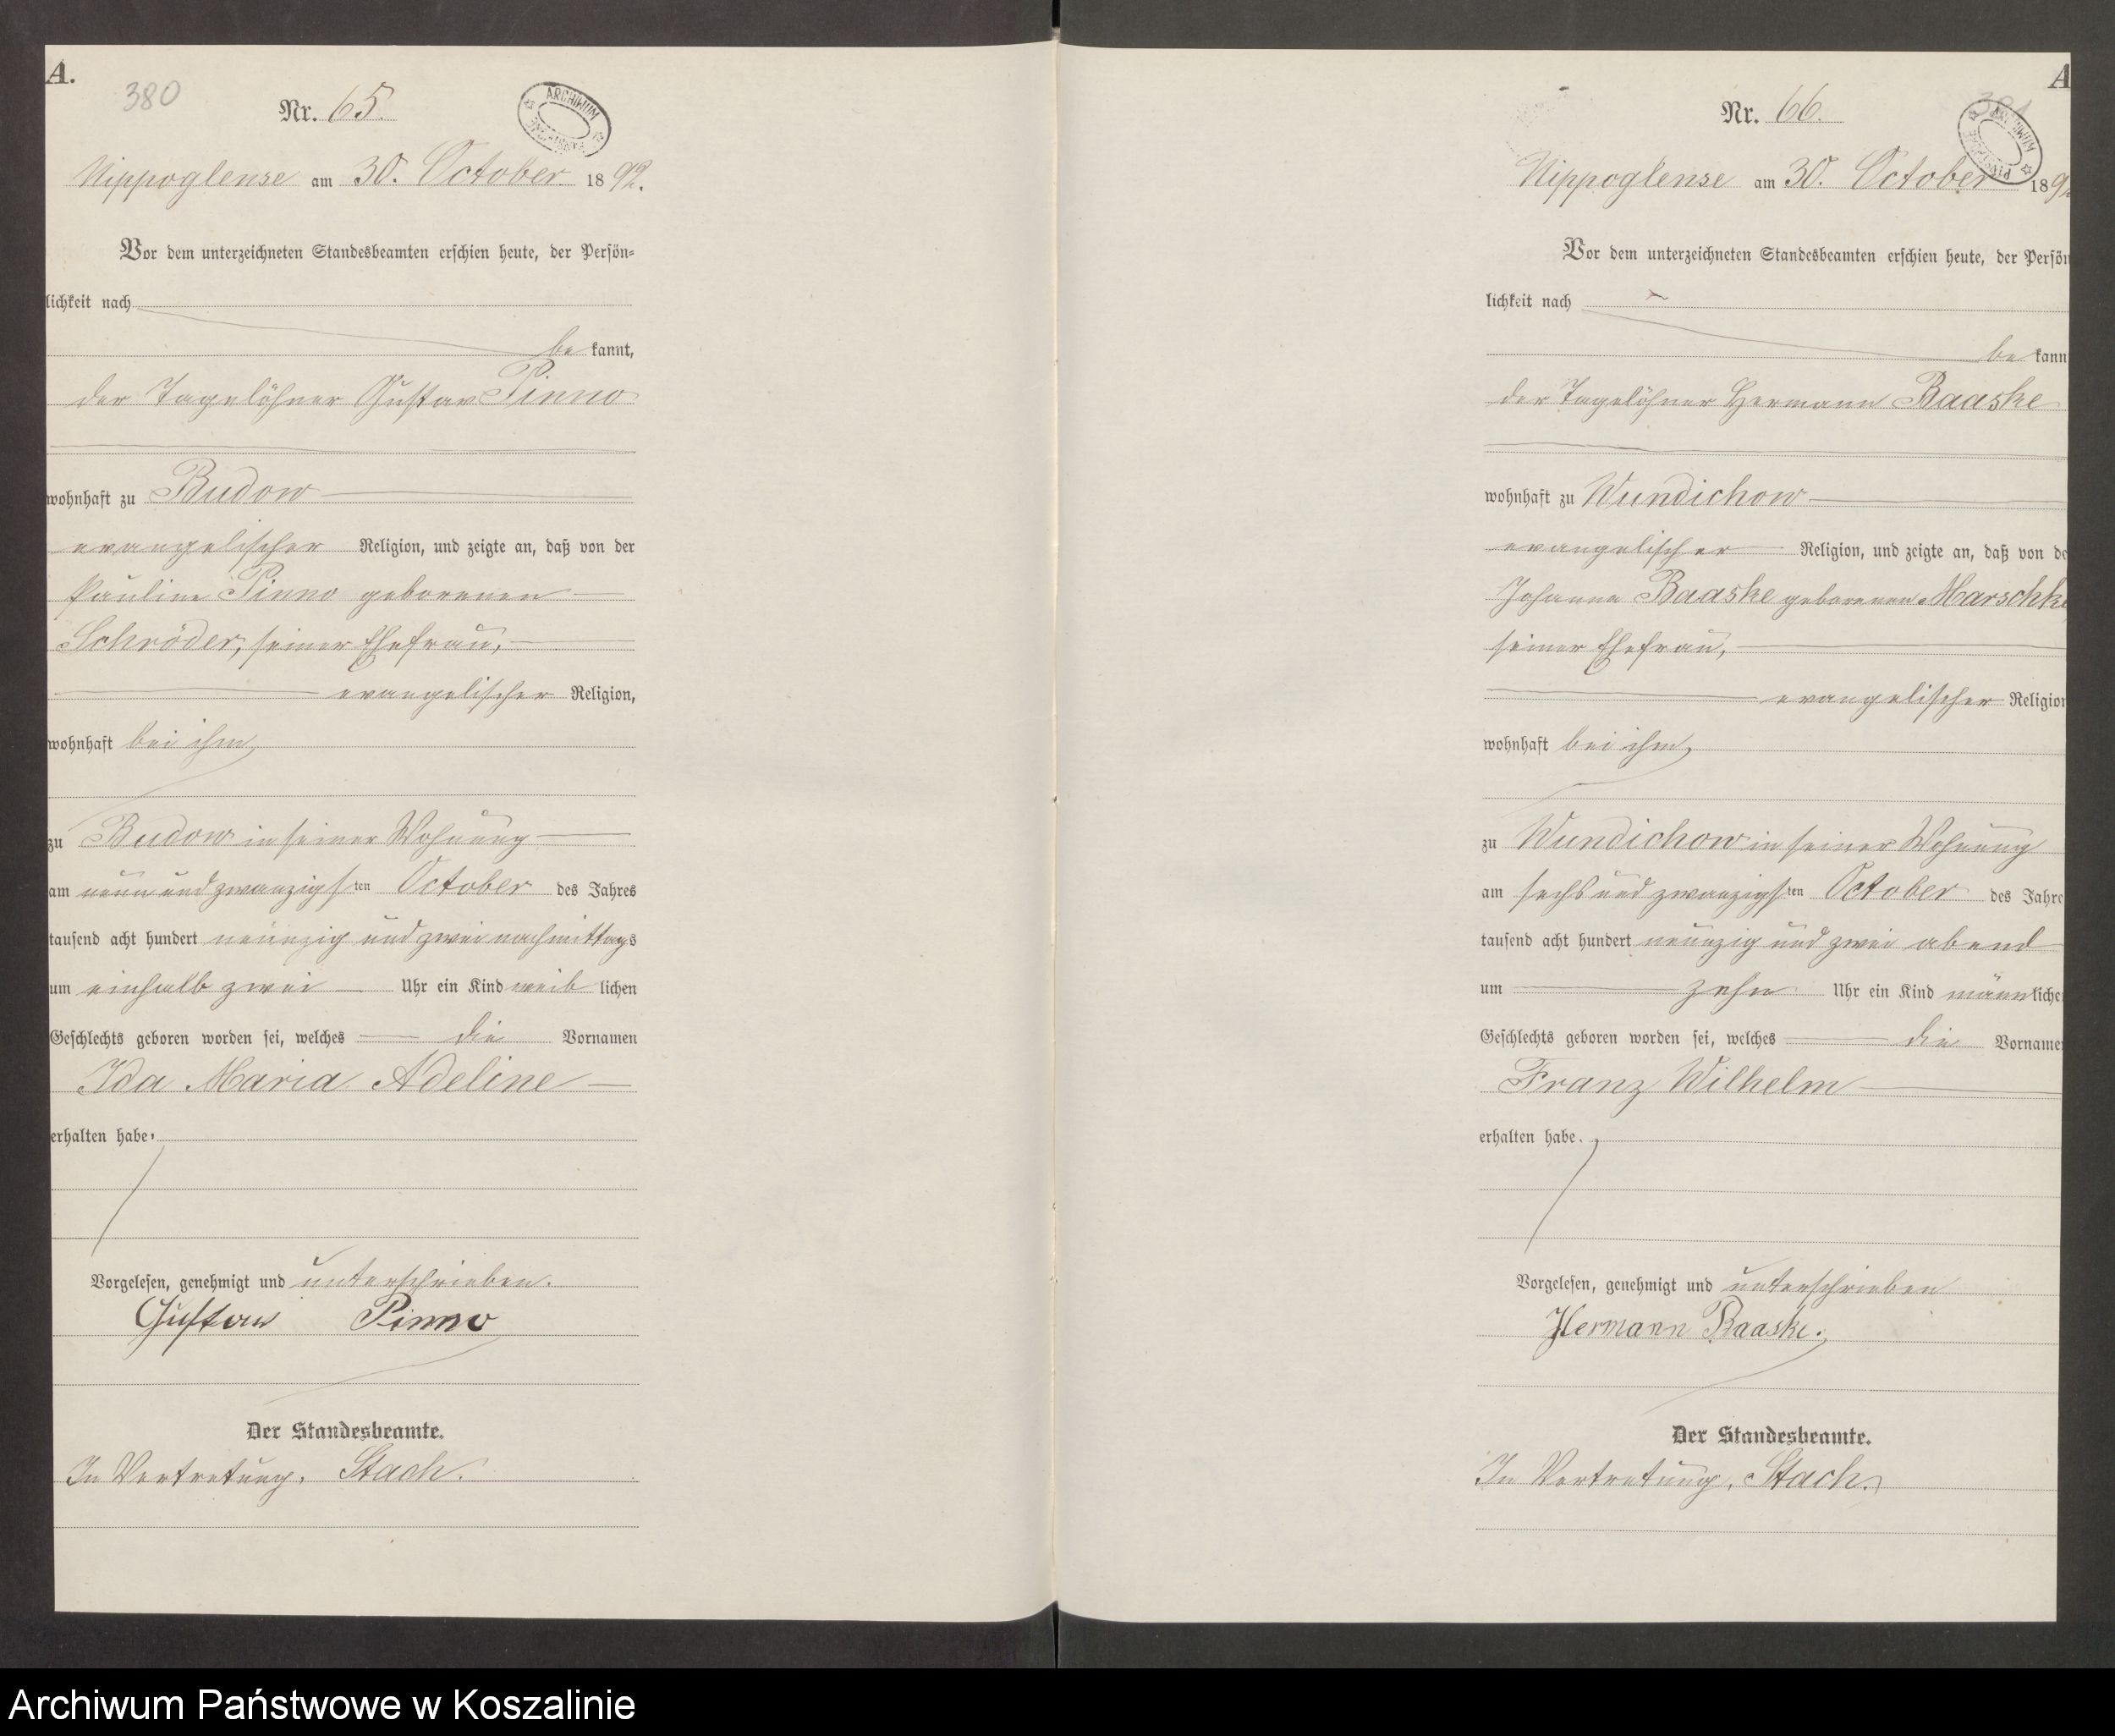 A.
380
Nr. 65.
ARCHIWUM
Nippoglense am 30. October 1892.
Vor dem unterzeichneten Standesbeamten erschien heute, der Persön-
lichkeit nach
be kannt,
der Tagelöhner Gustav Pinno
wohnhaft zu Budow
evangelischer Religion, und zeigte an, daß von der
Pauline Pinno geborenen
Schröder, seiner Ehefrau,
evangelischer Religion,
wohnhaft bei ihm,
zu Budow in seiner Wohnung
am neun und zwanzigsten October des Jahres
tausend acht hundert neunzig und zwei nachmittags
um einhalb zwei Uhr ein Kind weib lichen
Geschlechts geboren worden sei, welches die Vornamen
Ida Maria Adeline
erhalten habe.
Vorgelesen, genehmigt und unterschrieben.
Gustav Pinno
Der Standesbeamte.
In Vertretung. Stach.
A
381
Nr. 66.
ARCHIWUM
Nippoglense am 30. October 189
Vor dem unterzeichneten Standesbeamten erschien heute, der Persön
lichkeit nach
be kann
der Tagelöhner Hermann Baaske
wohnhaft zu Wundichow
evangelischer Religion, und zeigte an, daß von de
Johanna Baaske geborenen Marschke
seiner Ehefrau,
evangelischer Religion
wohnhaft bei ihm,
zu Wundichow in seiner Wohnung
am sechs und zwanzigsten October des Jahre
tausend acht hundert neunzig und zwei abend
um zehn Uhr ein Kind männ liche
Geschlechts geboren worden sei, welches die Vorname
Franz Wilhelm
erhalten habe.
Vorgelesen, genehmigt und unterschrieben
Hermann Baaske.
Der Standesbeamte.
In Vertretung, Stach.
Archiwum Państwowe w Koszalinie